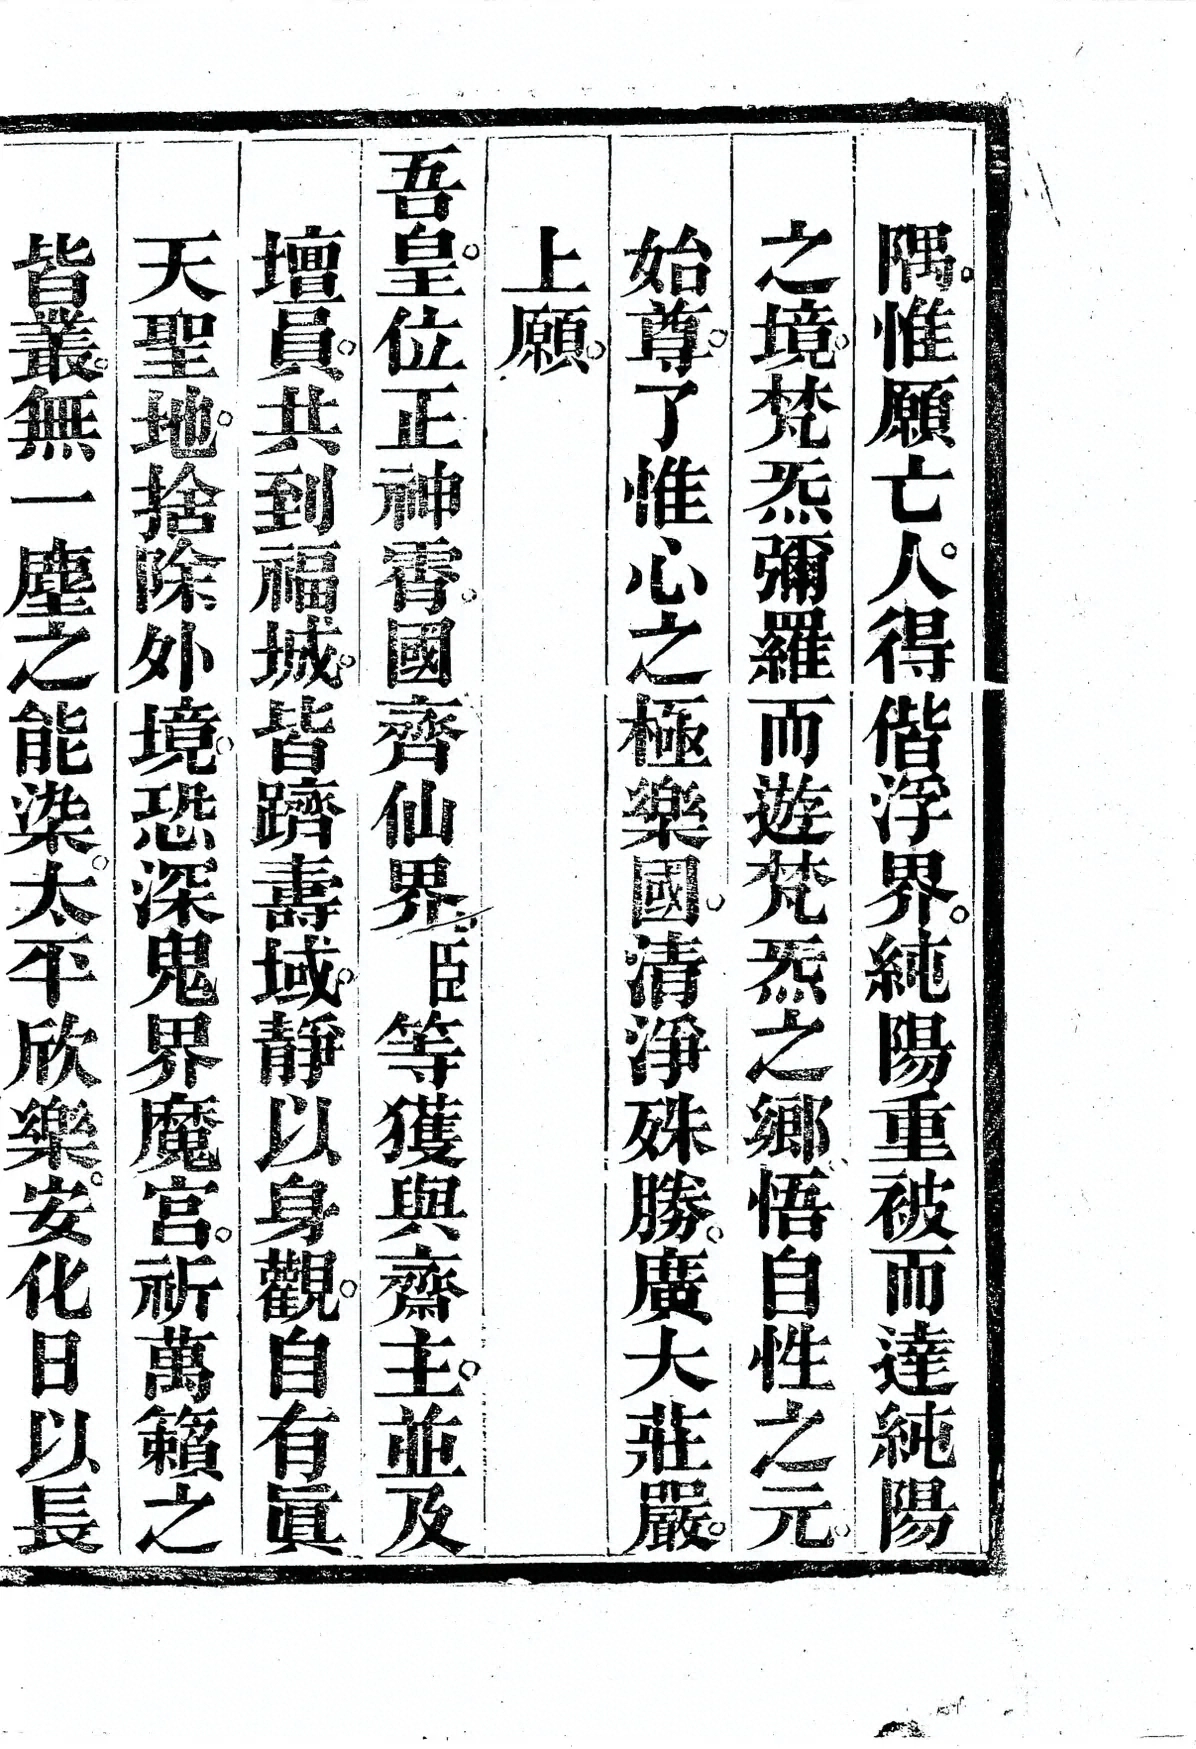 隅。惟願亡人。得偕浮界。純陽重被而達純陽
之境。梵炁彌羅而遊梵炁之鄉。悟自性之元。
始尊。了惟心之極樂國。清淨殊勝。廣大莊嚴。
上願。
吾皇。位正神霄。國齊仙界。臣等獲與齋主。並及
壇員。共到福城。皆躋壽域。靜以身觀。自有眞
天聖地。捨除外境。恐深鬼界魔宮。祈萬籟之
皆叢。無一塵之能染。太平欣樂。安化日以長